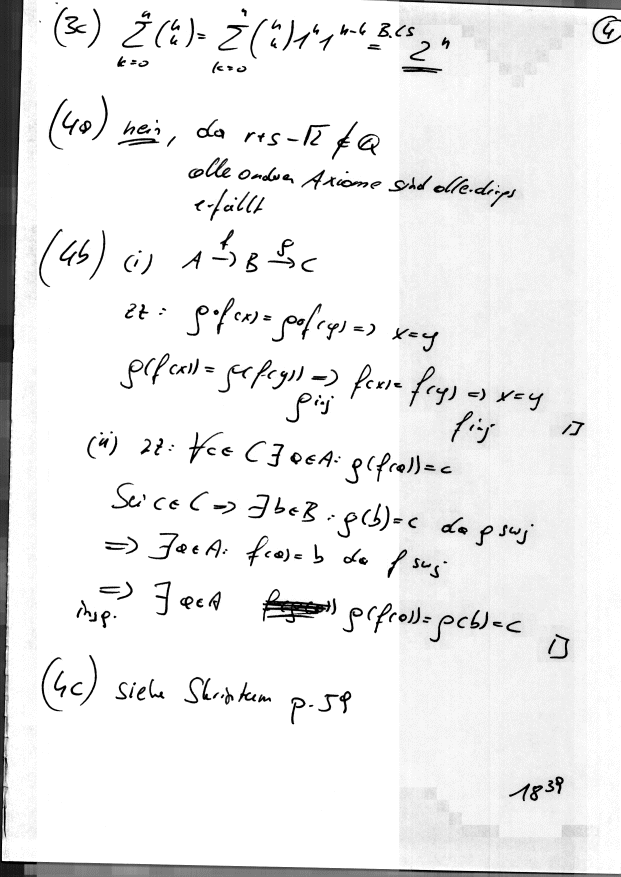 ④
(3c) $\sum_{k=0}^{n} \binom{n}{k} = \sum_{k=0}^{n} \binom{n}{k} 1^k 1^{n-k} \overset{B.LS}{=} \underline{\underline{2^n}}$
(4a) nein, da r+s-√2 ∉ Q
alle andren Axiome sind allerdings
erfüllt
(4b) (i) A →f B →g C
zz: g∘f(x) = g∘f(y) => x=y
g(f(x)) = g(f(y)) => f(x) = f(y) => x=y
g inj f inj □
(ii) zz: ∀c∈C ∃a∈A: g(f(a))=c
Sei c∈C => ∃b∈B: g(b)=c da g surj
=> ∃a∈A: f(a)=b da f surj
=> ∃a∈A g(f(a))=g(b)=c □
insg.
(4c) siehe Skriptum p. 59
18³⁹